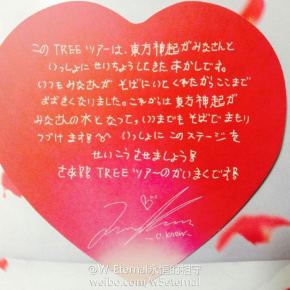 このTREEツアーは、東方神起がみなさんと
いっしょにせいちょうしてきたあかしです。
いつもみなさんがそばにいてくれたからここまで
おおきくなりました。これからは東方神起が
みなさんの木となって、いつまでもそばでまもり
つづけます いっしょにこのステージを
せいこうさせましょう
さあ TREEツアーのかいまくです
U-Know
@W-Eternal永恒的相守
weibo.com/wseternal